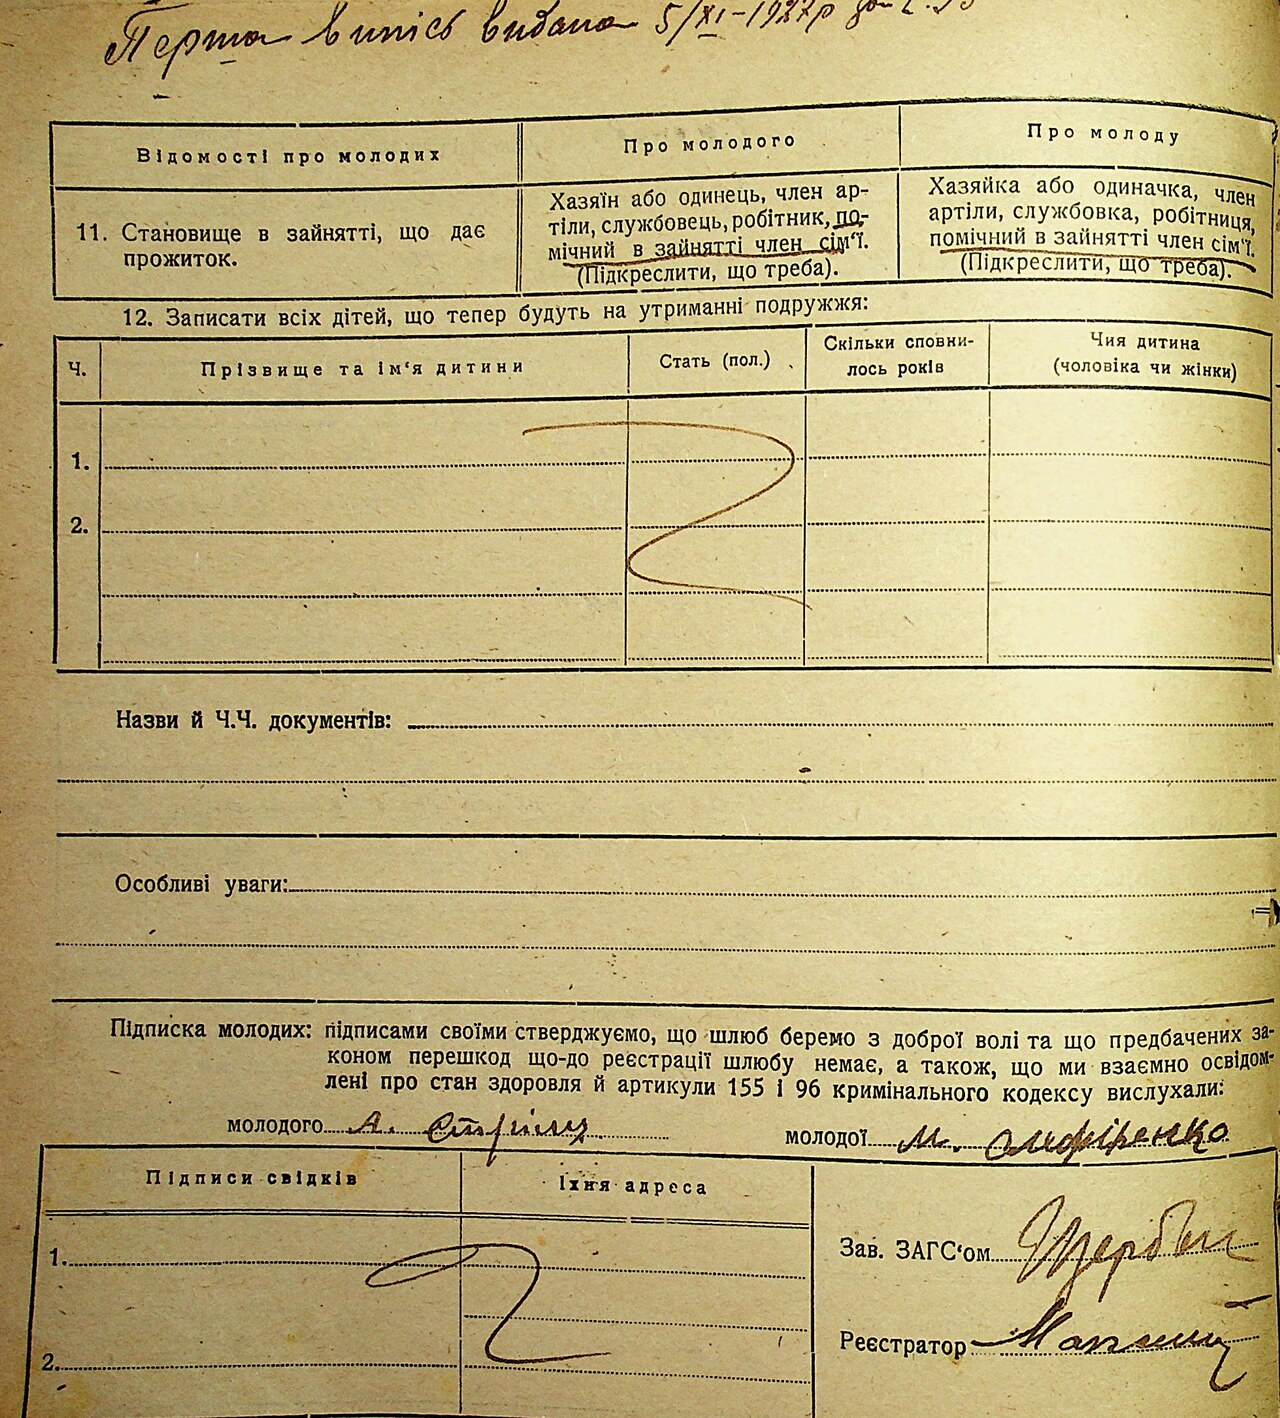 Перша випись видана 5/XI-1927р за
Відомості про молодих
Про молодого
Про молоду
11. Становище в зайнятті, що дає
прожиток.
Хазяїн або одинець, член ар-
тіли, службовець, робітник, по-
мічний в зайнятті член сім'ї.
(Підкреслити, що треба).
Хазяйка або одиначка, член
артіли, службовка, робітниця,
помічний в зайнятті член сім'ї.
(Підкреслити, що треба).
12. Записати всіх дітей, що тепер будуть на утриманні подружжя:
Ч.
Прізвище та ім'я дитини
Стать (пол.)
Скільки сповни-
лось років
Чия дитина
(чоловіка чи жінки)
1.
2.
Назви й Ч.Ч. документів:
Особливі уваги:
Підписка молодих: підписами своїми стверджуємо, що шлюб беремо з доброї волі та що предбачених за-
коном перешкод що-до реєстрації шлюбу немає, а також, що ми взаємно освідом-
лені про стан здоровля й артикули 155 і 96 кримінального кодексу вислухали:
молодого А. Стрілец
молодої М.
Підписи свідків
Їхня адреса
1.
2.
Зав. ЗАГС'ом
Реєстратор